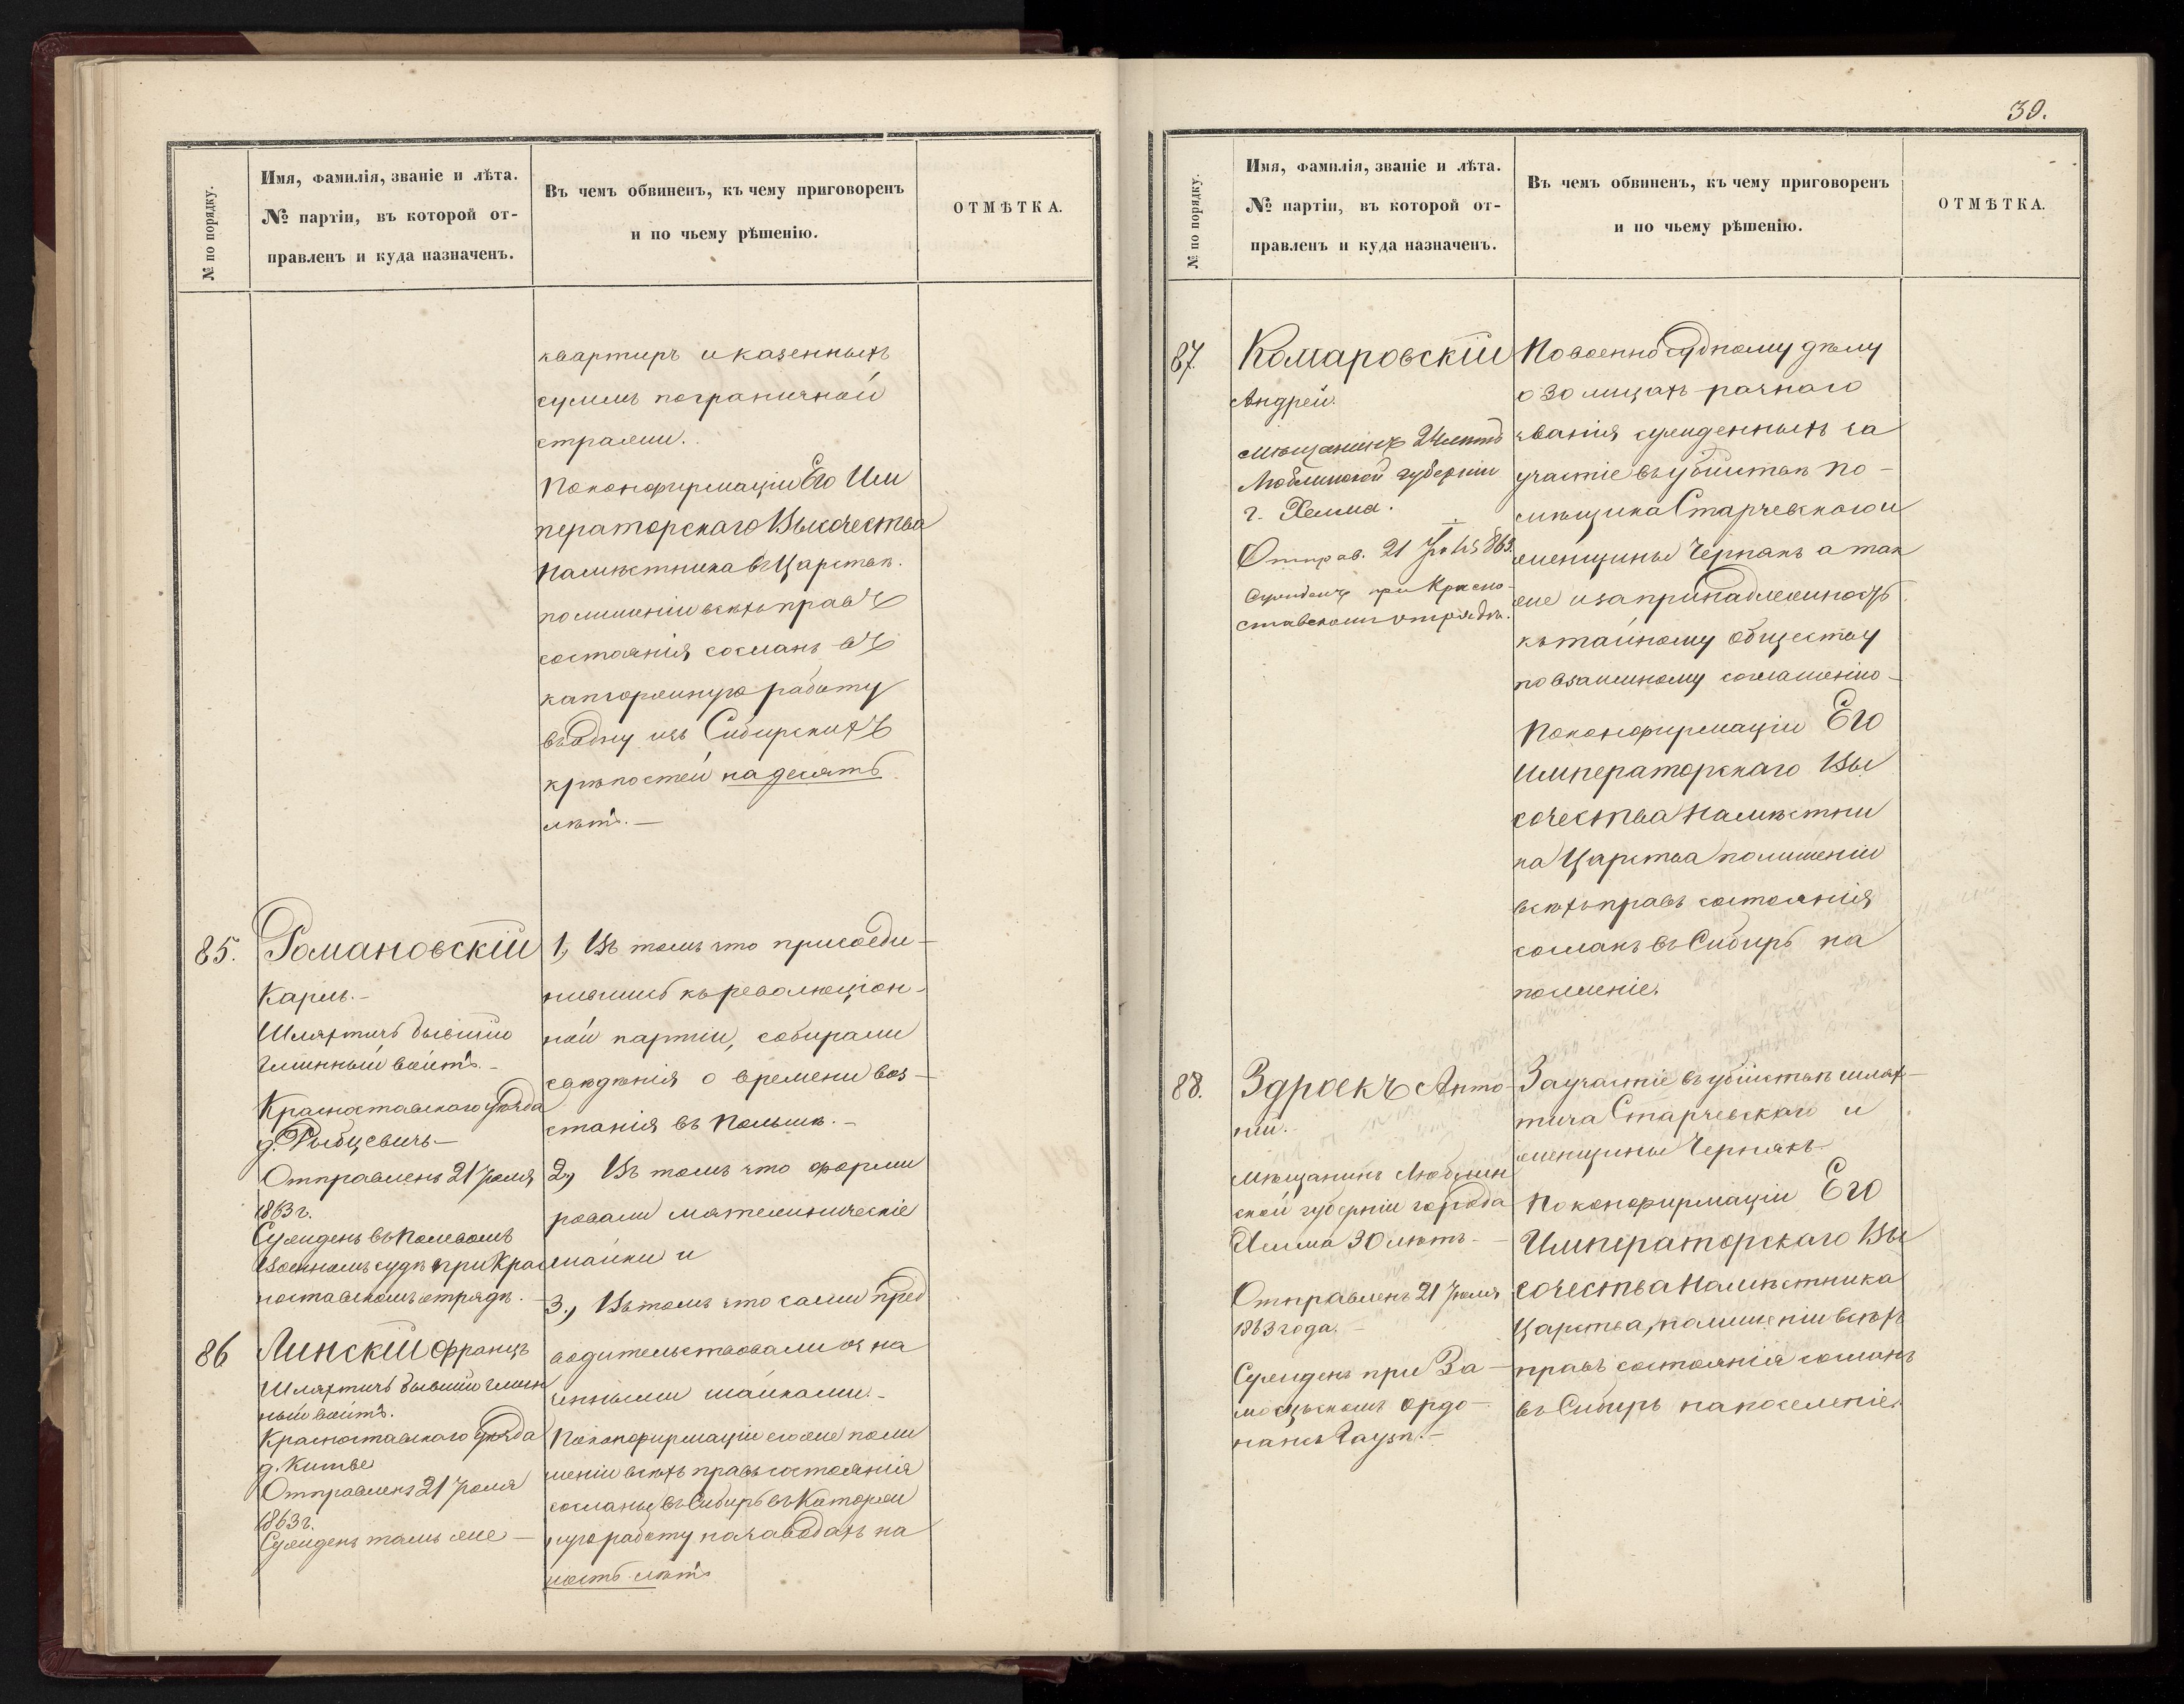 № по порядку.
Имя, фамилія, званіе и лѣта.
№ партіи, въ которой от-
правленъ и куда назначенъ.
Въ чемъ обвиненъ, къ чему приговоренъ
и по чьему рѣшенію.
ОТМѢТКА.
квартиръ и казенныхъ
суммъ пограничной
стражи.
По конфирмаціи Его Им
ператорскаго Высочества
Намѣстника въ Царствѣ.
по лишеніи всѣхъ правъ
состоянія сосланъ въ
каторжную работу
въ одну изъ Сибирскихъ
крѣпостей на десять
лѣтъ. —
85.
Романовскій
Карль. -
Шляхтичъ бывшій
гминный войтъ. -
Красноставскаго уѣзда
д. Рыбцевичъ —
Отправленъ 21 Іюля
1863 г.
Сужденъ въ Полевомъ
Военномъ судѣ при Крас
ноставскомъ отрядѣ.
86
Линскій Францъ
Шляхтичъ бывшій гмин
ный войтъ.
Красноставскаго уѣзда
д. Китве
Отправленъ 21 Іюля
1863 г.
Сужденъ тамъ же —
1, Въ томъ что присоеди-
нившись къ революціон-
ной партіи, собирали
свѣдѣнія о времени воз-
станія въ Польшѣ. -
2, Въ томъ что форми
ровали мятежническіе
шайки и
3., Въ томъ что сами пред
водительствовали озна
ченными шайками. -
По конфирмаціи его же по ли
шеніи всѣхъ правъ состоянія
сосланы въ Сибирь въ Каторж
ную работу на заводахъ на
шесть лѣтъ
39.
№ по порядку.
Имя, фамилія, званіе и лѣта.
№ партіи, въ которой от-
правленъ и куда назначенъ.
Въ чемъ обвиненъ, къ чему приговоренъ
и по чьему рѣшенію.
ОТМѢТКА.
87.
Комаровскій
Андрей.
Мѣщанинъ лѣтъ
Люблинской губерніи
г. Хелма.
Отправ. 21 863.
Сужденъ при Красно-
ставскомъ отрядѣ.
По военно судному дѣлу
о 30 лицахъ разнаго
званія сужденныхъ за
участіе въ убійствѣ по-
мѣщика Старчевскаго и
женщины Чернякъ а так
же и за принадлежность
къ тайному обществу
по взаимному соглашенію -
По конфирмаціи Его
Императорскаго Вы
сочества Намѣстни
ка Царства по лишеніи
всѣхъ правъ состоянія
сосланъ въ Сибирь на
поселеніе.
88.
Здроекъ Анто-
ній. -
Мѣщанинъ Люблин
ской губерніи города
Хелма 30 лѣтъ. -
Отправленъ 21 Іюля
1863 года. -
Сужденъ при За-
мосцьскомъ ордо-
нансъ Гаузѣ. -
За участіе въ убійствѣ шлях-
тича Старчевскаго и
женщины Чернякъ.
По конфирмаціи Его
Императорскаго Вы
сочества Намѣстника
Царства, по лишеніи всѣхъ
правъ состоянія сосланъ
въ Сибирь на поселеніе.